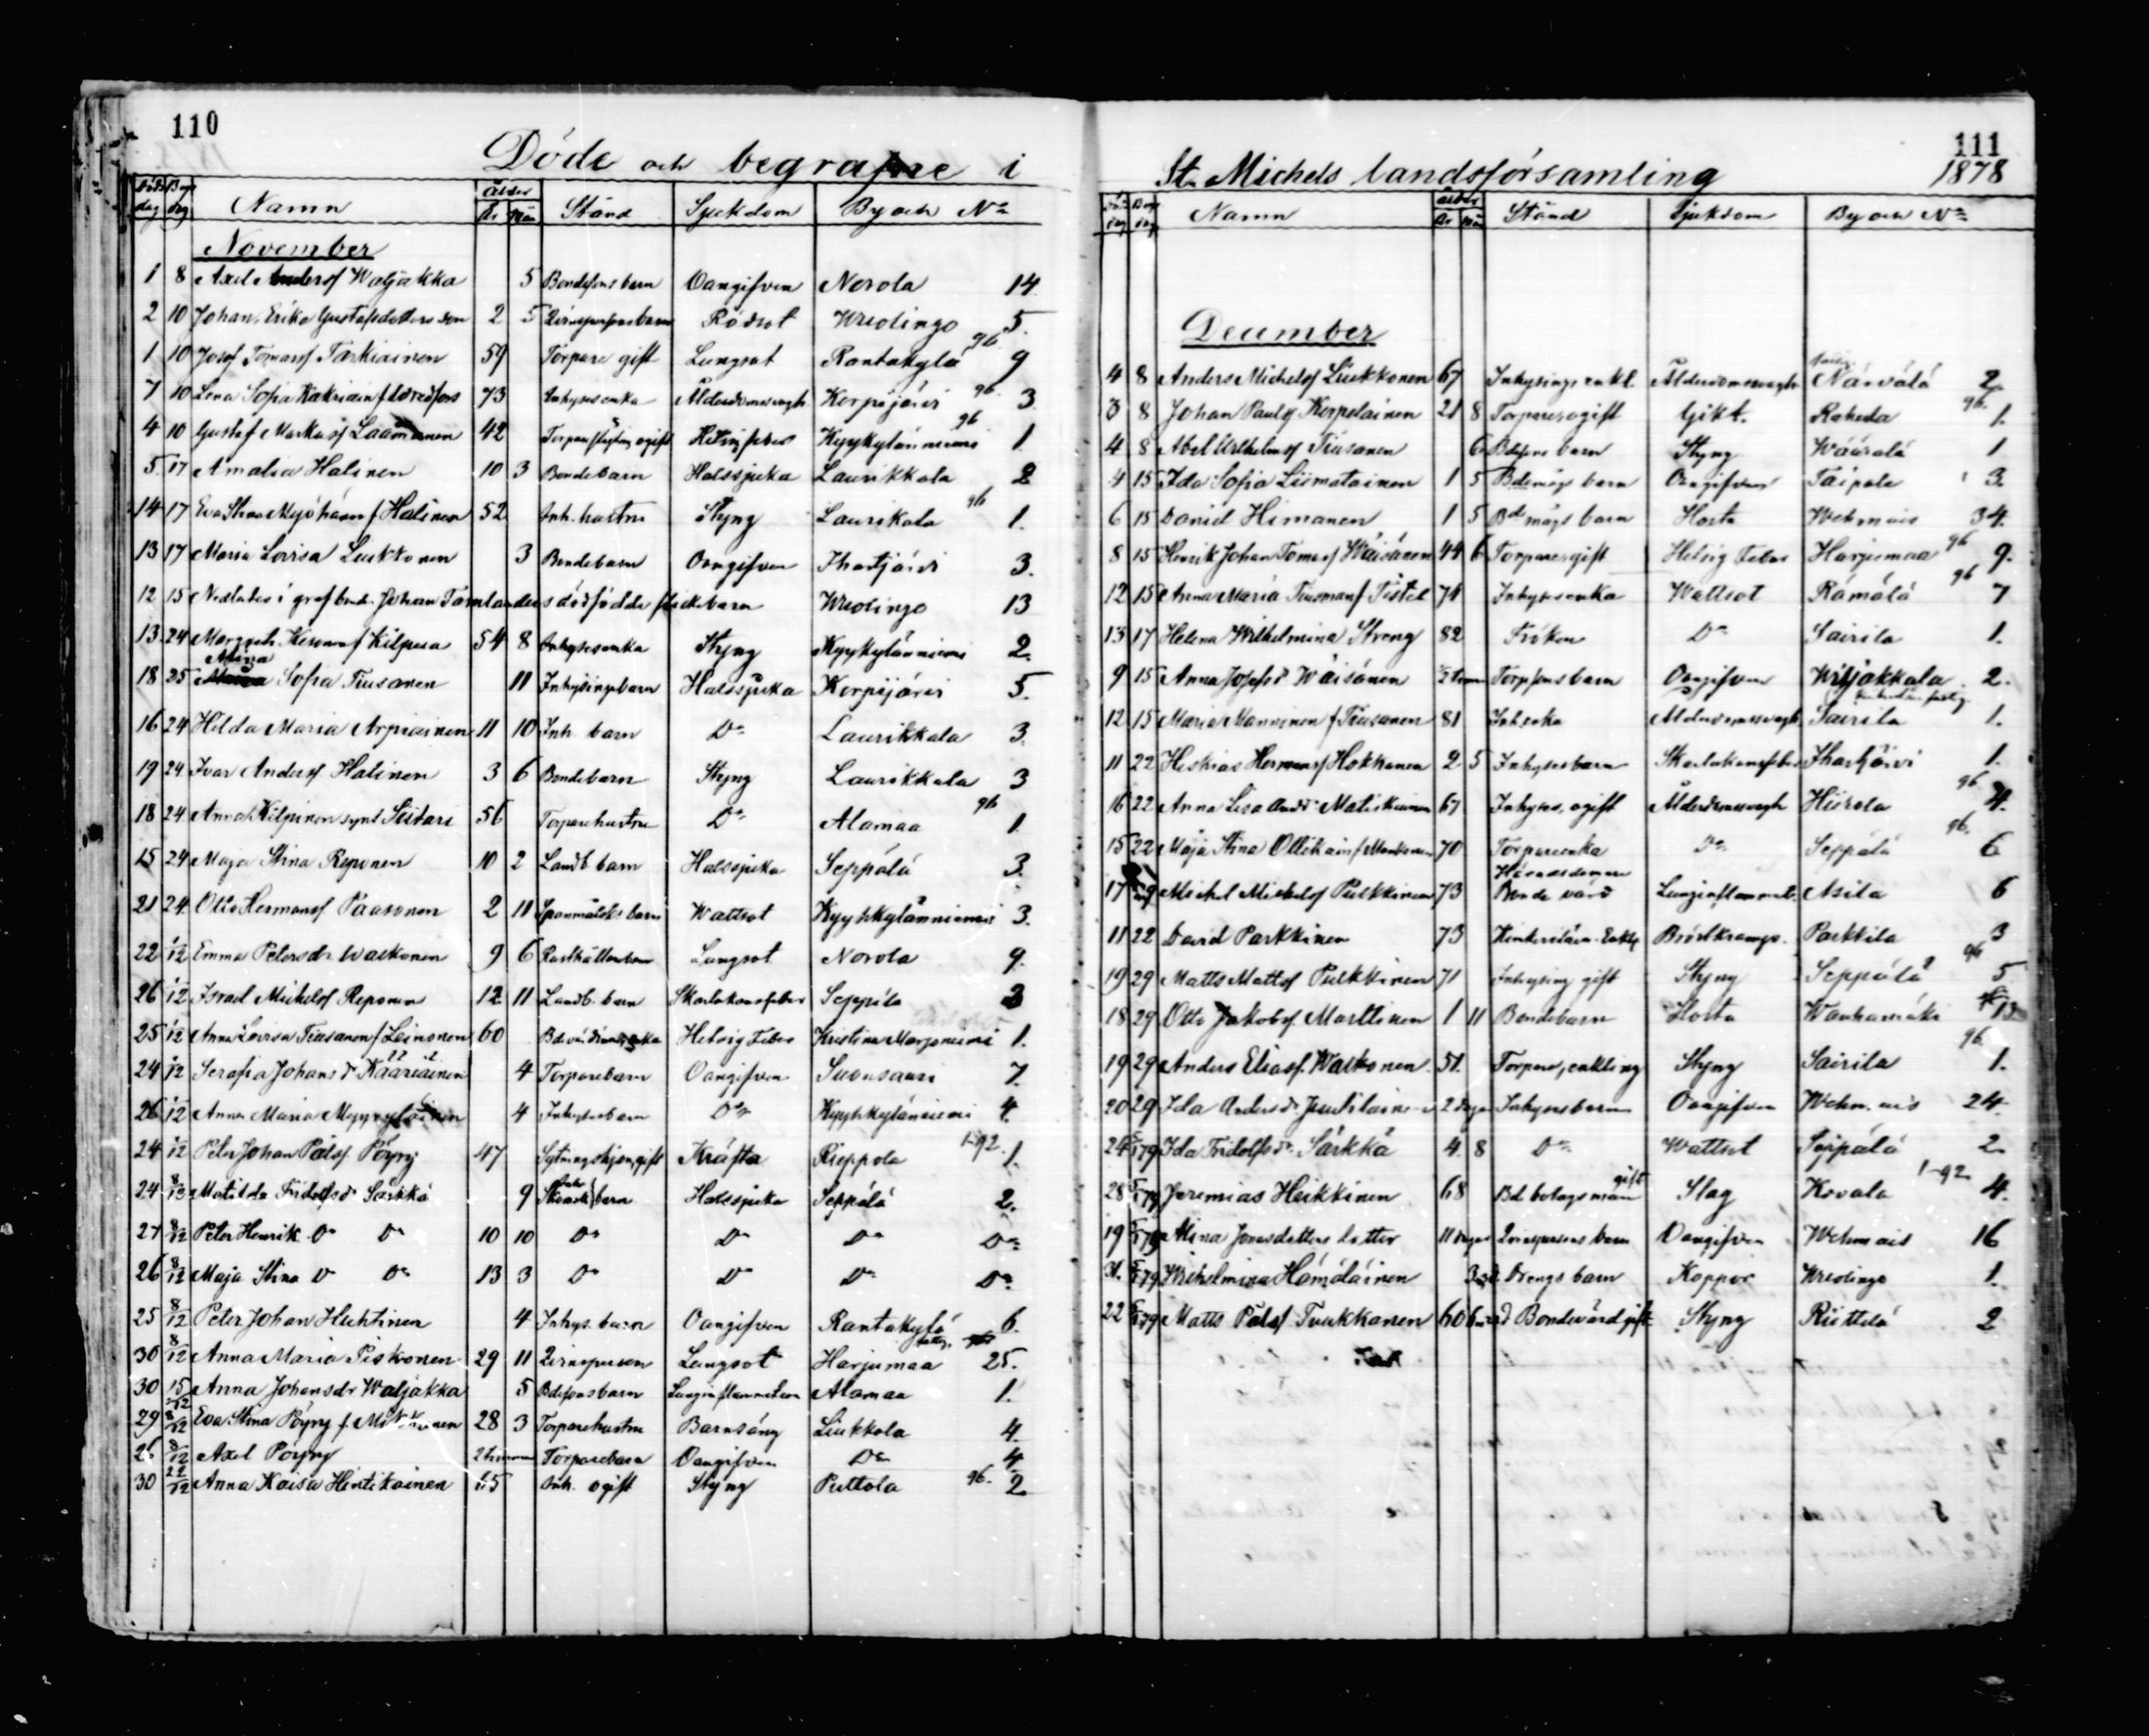 110
Döde och begrafne i
Döds dag Begr dag Namn Ålder År Mån Stånd Sjukdom By och No
November
1 8 Axel Andersf Waljakka 5 Bondesons barn Oangifven Norola 14
2 10 Johan, Erika Gustafsdotters son 2 5 Qvinspersons barn Rödsot Wreolingo 5.
1 10 Josef Tomasf Tarkiainen 59 Torpare gift Lungsot Rantakylä 96 9
7 10 Lena Sofia 73 Inhyses enka Ålderdomssvagh. Korpijärvi 96. 3
4 10 Gustaf Markusf Laamanen 42 Hetsig feber Kyyhkylänniemi 96 1.
5. 17 Amalia Halinen 10 3 Bondebarn Halssjuka Laurikkala 2
14 17 Eva Stina f. Halinen 52 Inh. hustru Styng Laurikala 96 1.
13 17 Maria Lovisa Liukkonen 3 Bondebarn Oangifven Ihastjärvi 3.
12 15 Nedlades i graf bond. Johan Tamlanders dödfödda flickebarn Wreolingo 13
13. 24 Margeta f Kilpiä 54 8 Inhyses enka Styng Kyyhkylänniemi 2.
18 25 Alina Sofia Tiusanen 11 Inhysingsbarn Halssjuka Korpijärvi 5.
16 24 Hilda Maria Arpiainen 11 10 Inh. barn Do Laurikkala 3.
19 24 Ivar Andersf Halinen 3 6 Bondebarn Styng Laurikkala 3
18 24 Anna Kilpinen synt Siitari 56 Torparehustru Do Alamaa 96 1
15 24 Maja Stina Reponen 10 2 Landb barn Halssjuka Seppälä 3.
21 24 Otto Hermansf Paasonen 2 11 Spannmålsks barn Wattsot Kyyhkylänniemi 3.
22 1/12 Emma Petersdr Waskonen 9 6 Rusthållarebarn Lungsot Norola 9.
26 1/12 Israel Michelsf Reponen 12 11 Landb. barn Skarlakansfeber Seppälä 3
25 1/12 Anna Lovisa Tiusanen f Leinonen 60 Hetsig Feber Kristina Marjoniemi 1.
24 1/12 Serafia Johansdr Kääriäinen 4 Torparebarn Oangifven Suonsaari 7.
26 1/12 Anna Maria 4 Inhysesbarn Do Kyyhkylänniemi 4.
24 1/12 Peter Johan Pålsf Pöyry 47 Sytningshjon, gift Kräfta Rieppola 1-92. 1.
24 8/12 Matilda Fridolfsdr Särkkä 9 barn Halssjuka Seppälä 2.
27 8/12 Peter Henrik Do Do 10 10 Do Do Do Do
26 8/12 Maja Stina Do Do 13 3 Do Do Do Do
25 8/12 Peter Johan Huhtinen 4 Inhys. barn Oangifven Rantakylä 6.
30 8/12 Anna Maria Piskonen 29 11 Qvinsperson Lungsot Harjumaa 25.
30 15/12 Anna Johansdr Waljakka 5 Bdesons barn Lunginflammation Alamaa 1.
29 8/12 Eva Stina Pöyry f. Mikkonen 28 3 Torparehustru Barnsäng Liukkola 4.
26 8/12 Axel Pöyry 2 timmar Torparebarn Oangifven Do 4
30 22/12 Anna Kaisa Hintikainen 25 Inh. ogift Styng Puttola 96. 2
111
St. Michels landsförsamling 1878
Döds dag Begr dag Namn Ålder År Mån Stånd Sjukdom By och No
December
4 8 Anders Michelsf Liukkonen 67 Inhysings enkl. Ålderdomssvagh Närvälä 2.
3 8 Johan Paulsf Korpelainen 21 8 Torpareson ogift Gikt. Rahula 96. 1.
4 8 Abel Wilhelmsf Tiusanen 6 Bdesons barn Styng Wäärälä 1
4 15 Ida Sofia Liismatainen 1 5 Bdemågs barn Oangifven Taipale 3
6 15 Daniel Himanen 1 5 Bdemågs barn Hosta Wehmais 34.
8 15 Henrik Johan Tomasf Wäisänen 44 6 Torpare, gift Hetsig Feber Harjumaa 96 9.
12 15 Anna Maria f Pistel 74 Inhysesenka Wattsot Rämälä 96 7
13 17 Helena Wilhelmina Streng 82 Fröken Do Sairila 1.
9 15 Anna Josefsdr Wäisänen Torpsons barn Oangifven Wiljakkala 2.
12 15 Maria Manninen f Tiusanen 81 Inh. enka Ålderdomssvagh. Sairila 1.
11 22 Hiskias Hermansf Hokkanen 2 5 Inhysesbarn Skarlakansfeber Ihastjärvi 1.
16 22 Anna Lisa Andsdr Matiskainen 67 Inhyses, ogift Ålderdomssvagh Hiirola 96 4.
15 22 Maja Stina Ollikain f Manninen 70 Torpareenka Do Seppälä 96. 6
17 29 Michel Michelsf Pulkkinen 73 Häradsdomare Bonde värd Lunginflammat. Asila 6
11 22 David Parkkinen 73 Bröstkramp. Parkkila 3
19 29 Matts Mattsf Pulkkinen 71 Inhysing gift Styng Seppälä 96 5
18 29 Otto Jakobsf. Marttinen 1 11 Bondebarn Hosta Wanhamäki 13
19 29 Anders Eliasf. Waskonen 51. Torpare, enkling Styng Sairila 96 1.
20 29 Ida Andersdr 2 dagar Inhysesbarn Oangifven Wehmais 24.
24 5/1 79 Ida Fridolfsdr Särkkä 4. 8 Do Wattsot Seppälä 2
28 5/1 79 Jeremias Heikkinen 68 Bd. bolagsman gift Slag Kovala 1-92 4.
19 5/1 79 Alina Jonasdotters dotter 11 dagar Qvinspersons barn Oangifven Wehmais 16
31. 5/1 79 Wilhelmina Hämäläinen Drengs barn Koppor Wreolingo 1.
22 5/1 79 Matts Pålsf Tuukkanen 60 6 Bondevärd gift Styng Riittilä 2